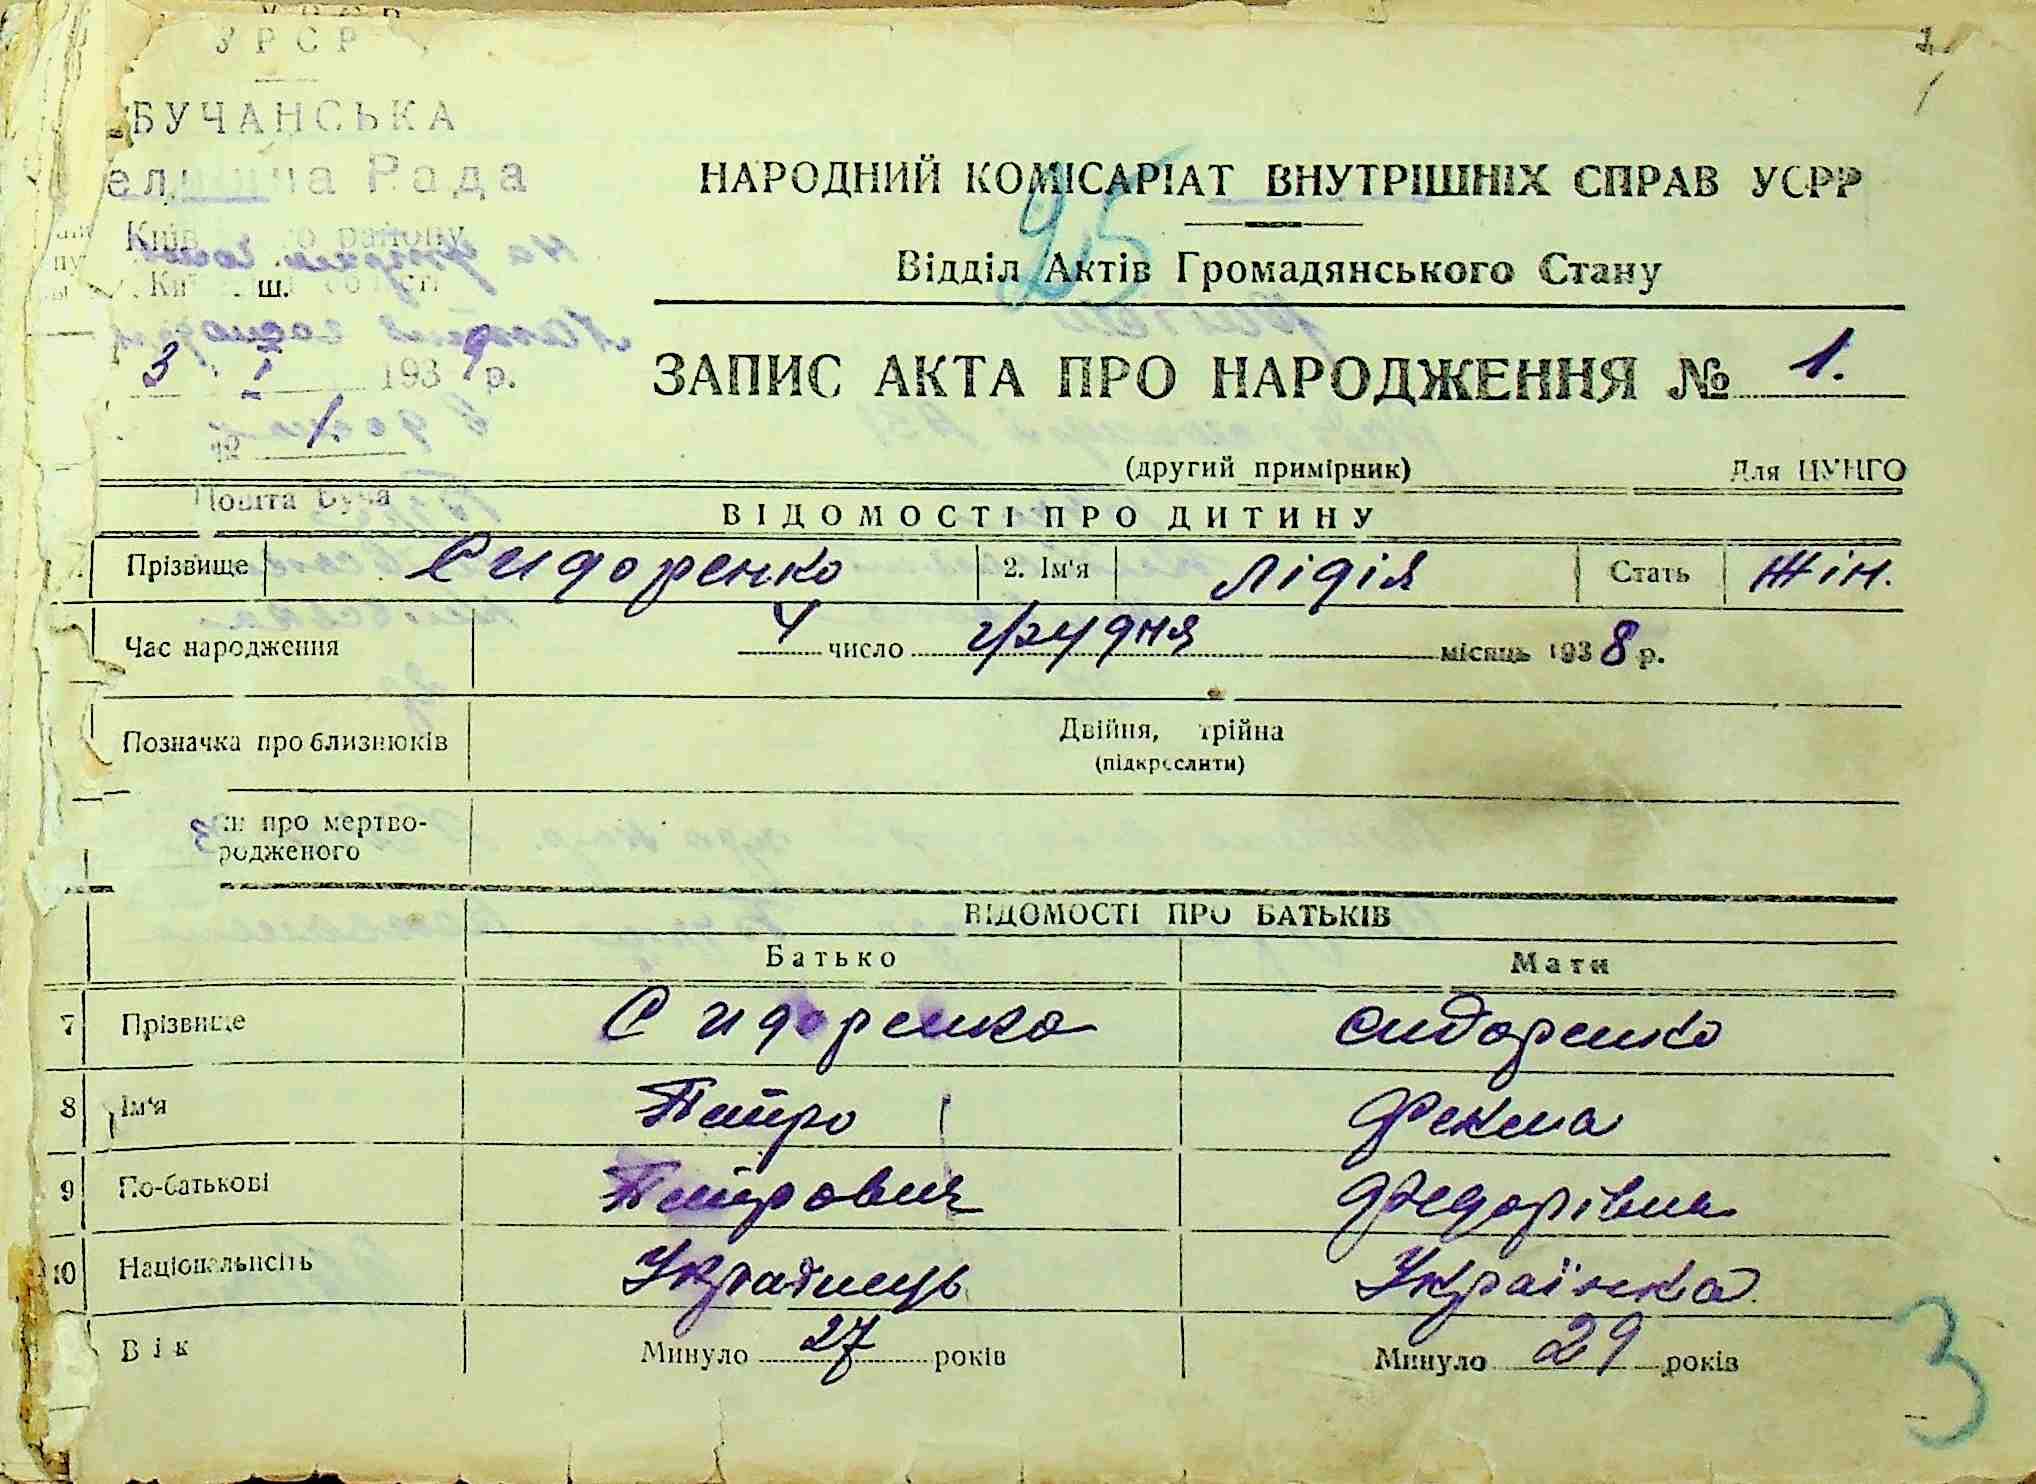 УРСР
БУЧАНСЬКА
Рада
району
3 I 1939 р.
№ 1.
Пошта Буча
1
НАРОДНИЙ КОМІСАРІАТ ВНУТРІШНІХ СПРАВ УСРР
25
Відділ Актів Громадянського Стану
ЗАПИС АКТА ПРО НАРОДЖЕННЯ № 1.
(другий примірник) Для ЦУНГО
ВІДОМОСТІ ПРО ДИТИНУ
Прізвище Сидоренко 2. Ім'я Лідія Стать Жін.
Час народження 4 число грудня місяць 1938 р.
Позначка про близнюків Двійня, трійна
(підкреслити)
про мертво-
родженого
ВІДОМОСТІ ПРО БАТЬКІВ
Батько Мати
7 Прізвище Сидоренко Сидоренко
8 Ім'я Петро Фекла
9 По-батькові Петрович Федорівна
10 Національність Українець Українка
Вік Минуло 27 років Минуло 29 років
3